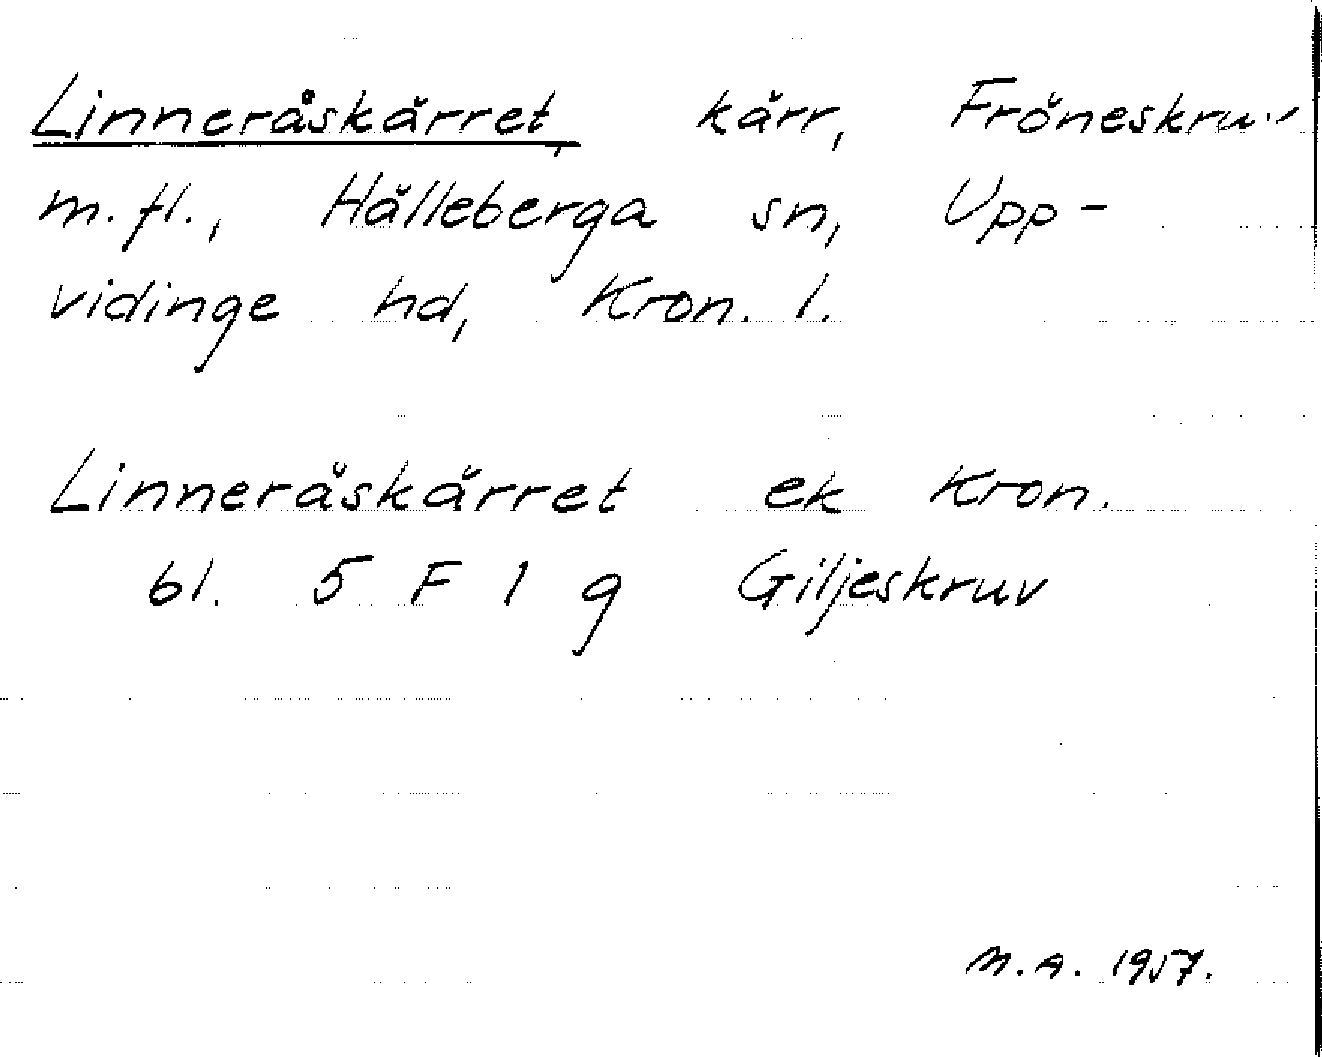 Linneråskärret, kärr, Fröneskruv
m.fl., Hälleberga sn, Upp-
vidinge hd, Kron. l.
Linneråskärret ek Kron.
bl. 5 F 1 g Giljeskruv
M.A. 1957.